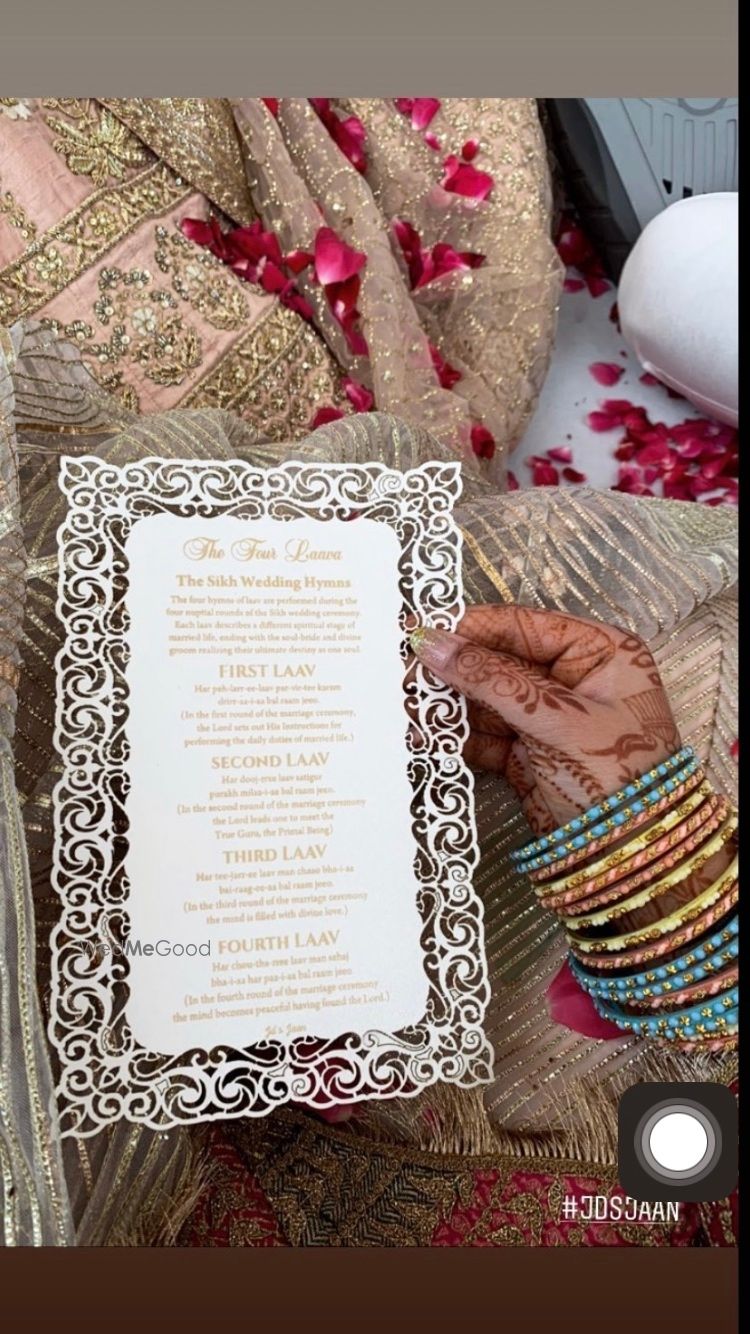 The Four Laava
The Sikh Wedding Hymns
The four hymns of laav are performed during the
four nuptial rounds of the Sikh wedding ceremony.
Each laav describes a different spiritual stage of
married life, ending with the soul-bride and divine
groom realizing their ultimate destiny as one soul.
FIRST LAAV
Har pah-larr-ee-laav par-vir-tee karam
drirr-aa-i-aa bal raam jeeo.
(In the first round of the marriage ceremony,
the Lord sets out His Instructions for
performing the daily duties of married life.)
SECOND LAAV
Har dooj-rree laav satigur
purakh milaa-i-aa bal raam jeeo.
(In the second round of the marriage ceremony
the Lord leads one to meet the
True Guru, the Primal Being)
THIRD LAAV
Har tee-jarr-ee laav man chaao bha-i-aa
bai-raag-ee-aa bal raam jeeo.
(In the third round of the marriage ceremony
the mind is filled with divine love.)
FOURTH LAAV
Har chou-tha-rree laav man sahaj
bha-i-aa har paa-i-aa bal raam jeeo.
(In the fourth round of the marriage ceremony
the mind becomes peaceful having found the Lord.)
Jd's Jaan
WedMeGood
#JDSJAAN